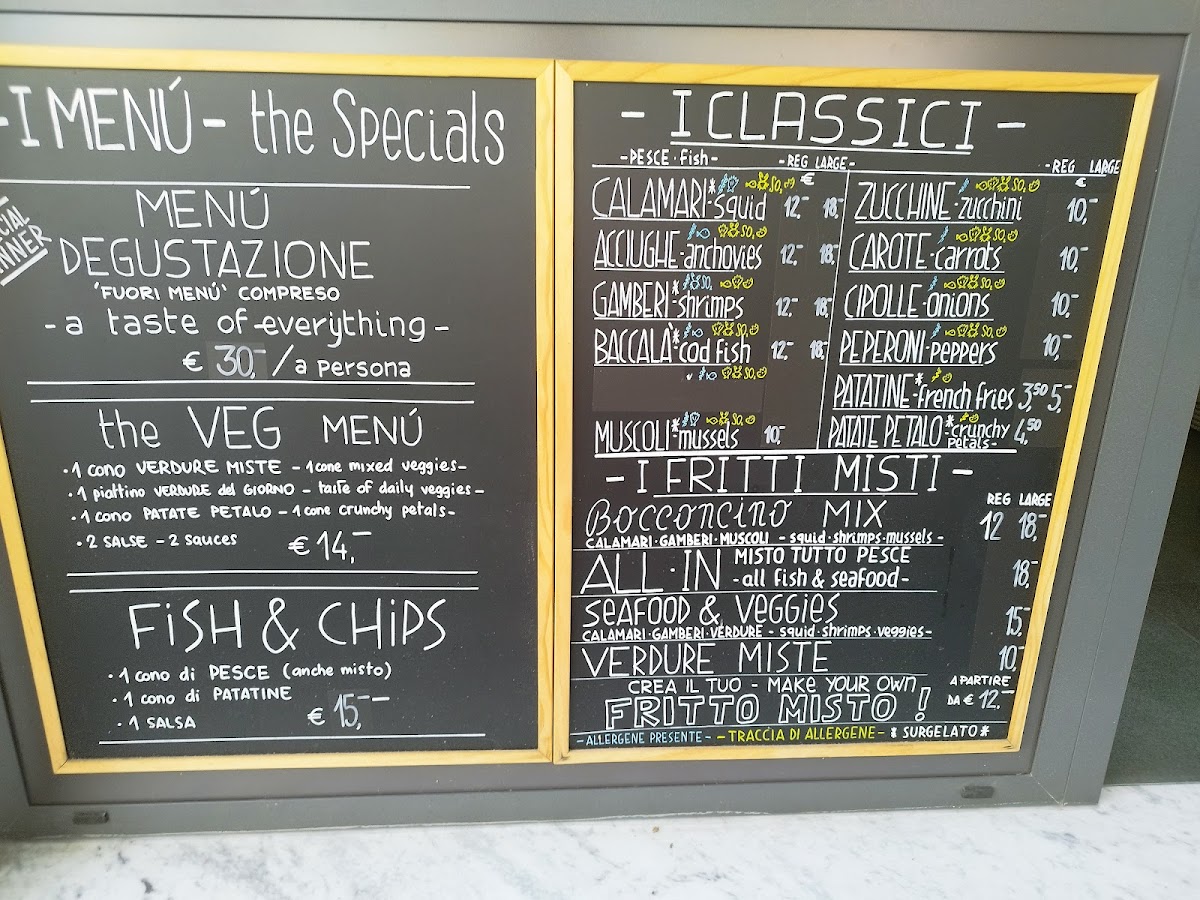 - I MENÚ - the Specials
MENÚ
DEGUSTAZIONE
'FUORI MENÚ' COMPRESO
- a taste of everything -
€ 30,- / a persona
the VEG MENÚ
· 1 cono VERDURE MISTE - 1 cone mixed veggies -
· 1 piattino VERDURE del GIORNO - taste of daily veggies -
· 1 cono PATATE PETALO - 1 cone crunchy petals -
· 2 SALSE - 2 sauces € 14,-
FISH & CHIPS
· 1 cono di PESCE (anche misto)
· 1 cono di PATATINE
· 1 SALSA € 15,-
- I CLASSICI -
- PESCE · fish - - REG LARGE -
€
CALAMARI* - squid 12,- 18,-
ACCIUGHE - anchovies 12,- 18,-
GAMBERI* - shrimps 12,- 18,-
BACCALÀ* - cod fish 12,- 18,-
MUSCOLI* - mussels 10,-
- REG LARGE
€
ZUCCHINE - zucchini 10,-
CAROTE - carrots 10,-
CIPOLLE - onions 10,-
PEPERONI - peppers 10,-
PATATINE* - french fries 3,50 5,-
PATATE PETALO* - crunchy petals - 4,50
- I FRITTI MISTI -
REG LARGE
BOCCONCINO MIX 12 18,-
CALAMARI · GAMBERI · MUSCOLI - squid · shrimps · mussels -
ALL · IN MISTO TUTTO PESCE
- all fish & seafood - 18,-
SEAFOOD & VEGGIES 15,-
CALAMARI · GAMBERI · VERDURE - squid · shrimps · veggies -
VERDURE MISTE 10,-
CREA IL TUO - MAKE YOUR OWN A PARTIRE
FRITTO MISTO! DA € 12,-
- ALLERGENE PRESENTE - - TRACCIA DI ALLERGENE - * SURGELATO *